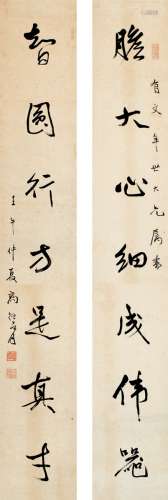 膽大心細成偉器
有文年世大兄屬書
智圓行方是真才
壬午仲夏